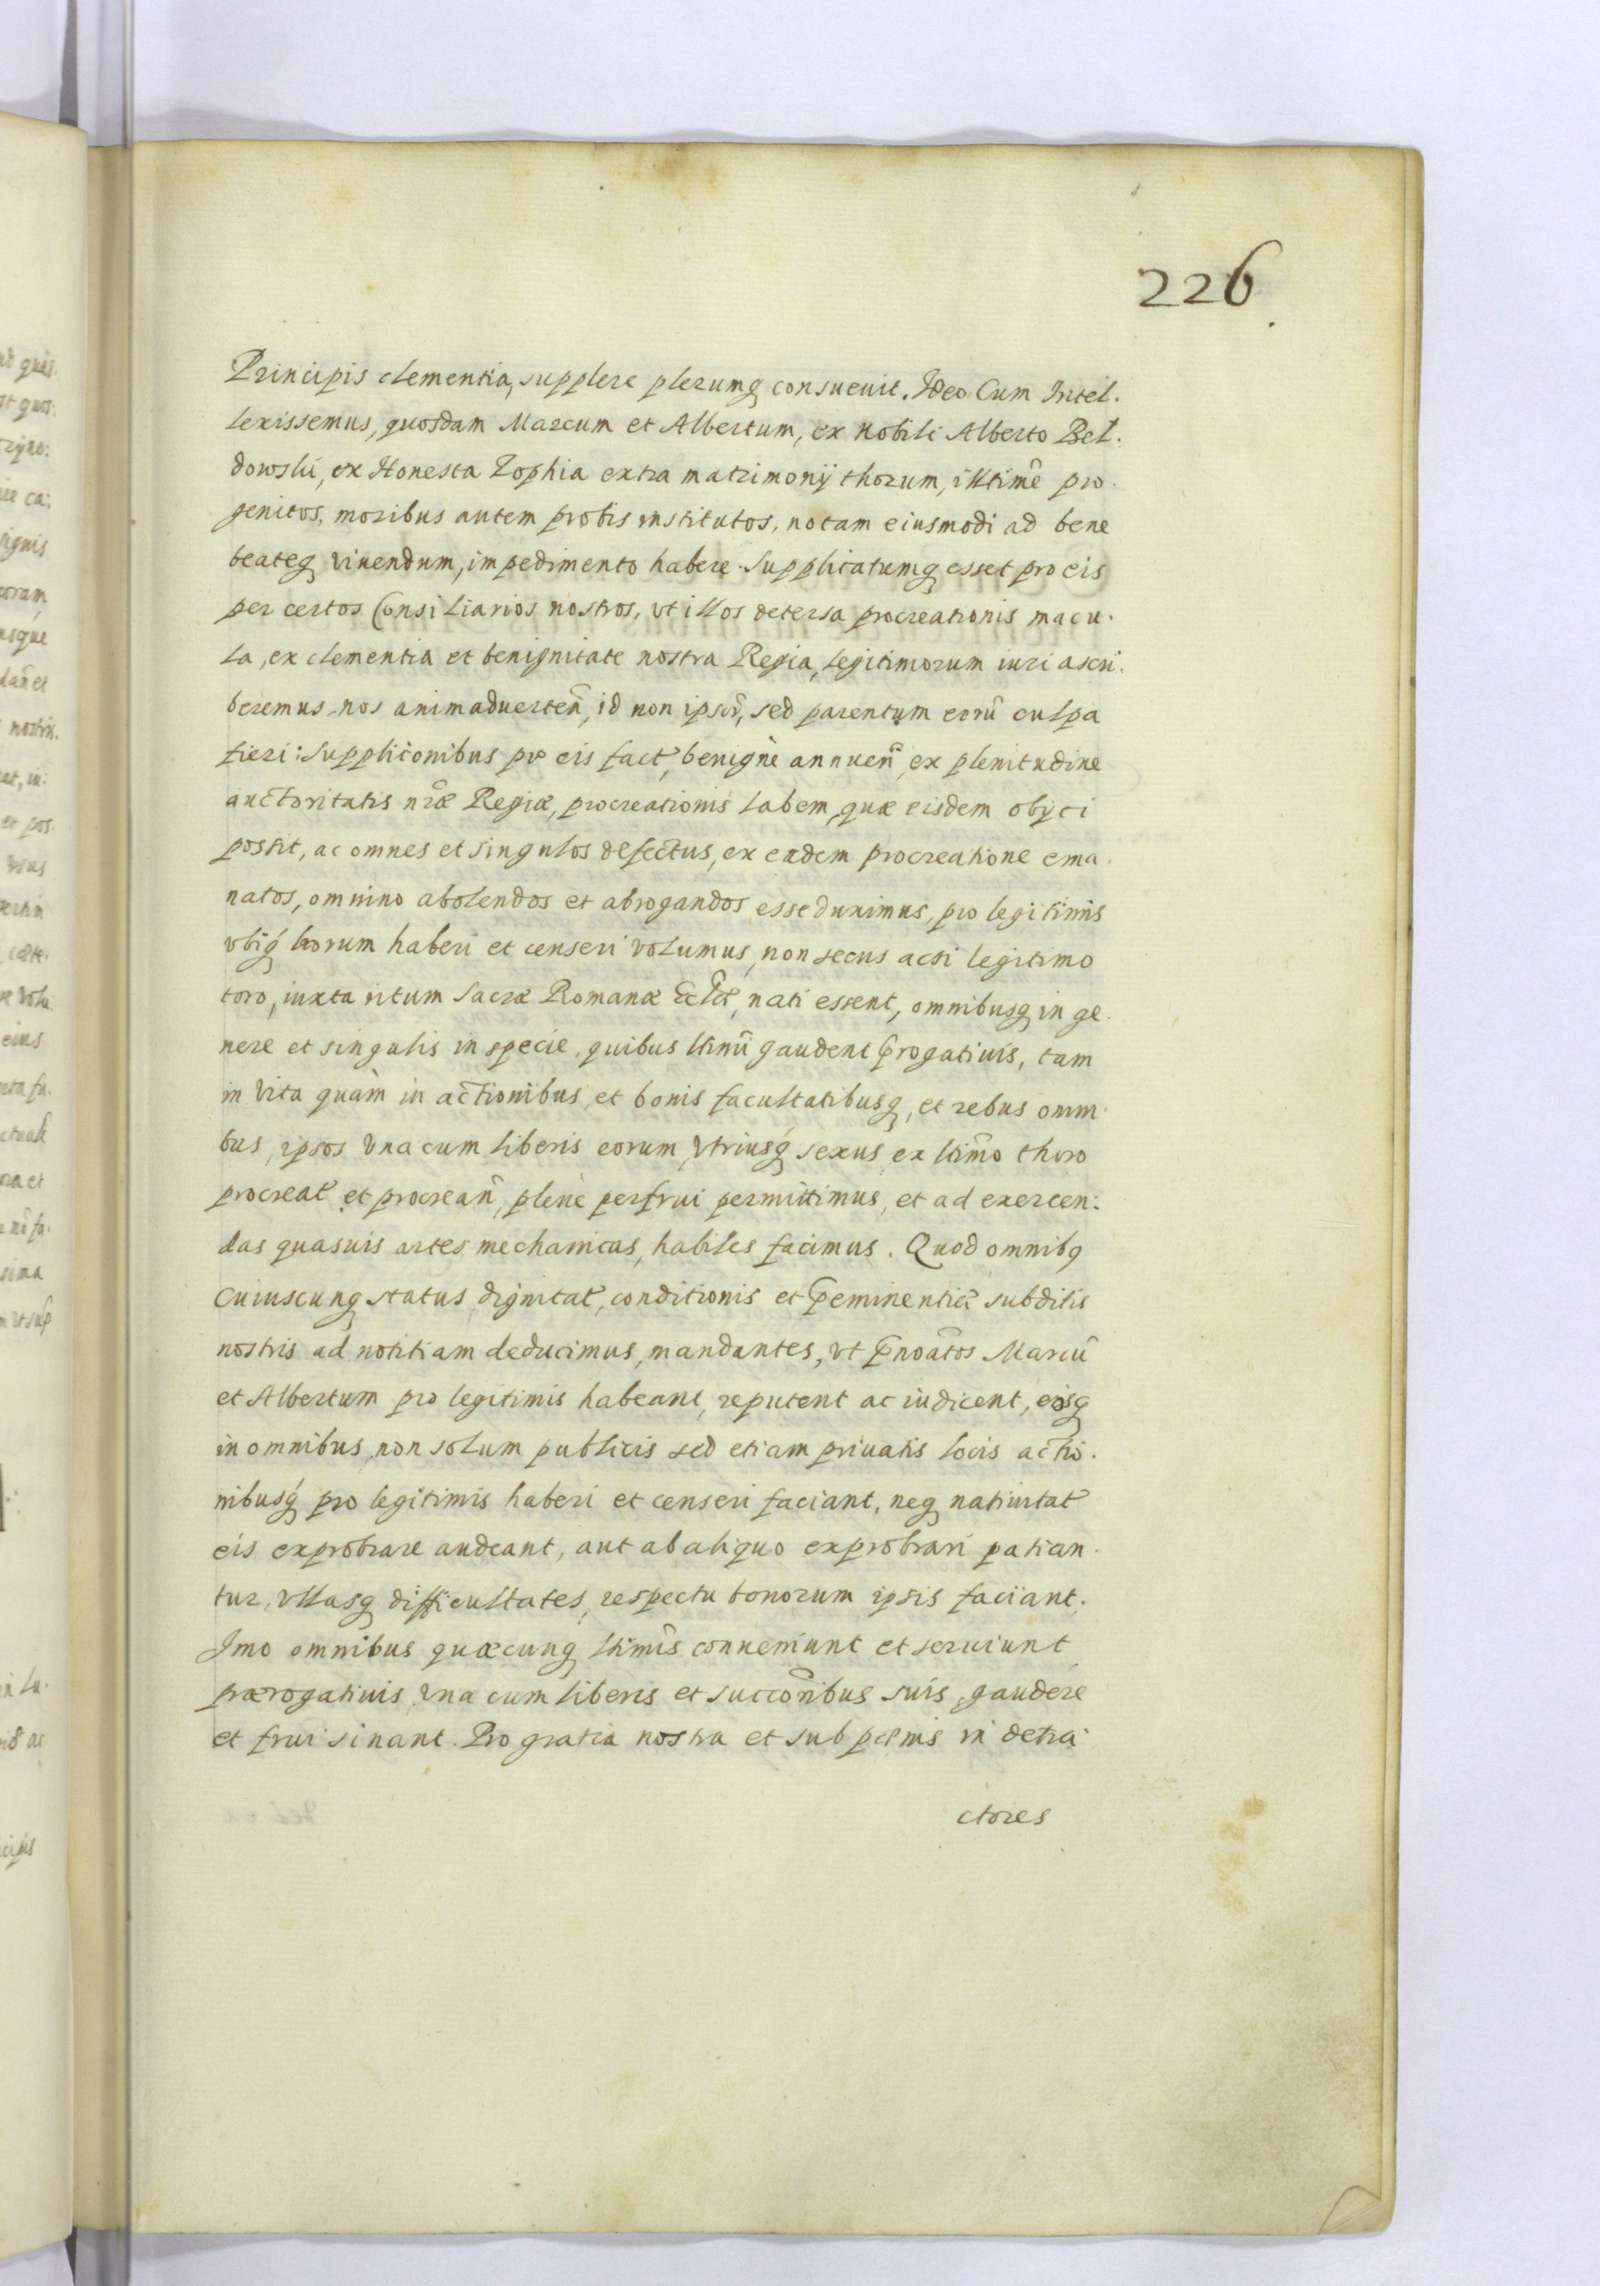 226
Principis clementia, supplere plerumq consueuit. Ideo Cum Intel.
lexissemus, quosdam Marcum et Albertum, ex nobili Alberto Bel.
dowslii, ex Honesta Zophia extra matrimonij thorum, illtimẽ pro.
genitos, moribus autem probis institutos, notam eiusmodi ad bene
beateq viuendum, impedimento habere. Supplicatumq esset pro eis
per certos Consiliarios nostros, vt illos detersa procreationis macu.
la, ex clementia et benignitate nostra Regia, legitimorum iuri ascri.
beremus, nos animaduerteñ, id non ipsor̃, sed parentum eorũ culpa
fieri: Supplicõnibus pro eis fact, benignè annueñ, ex plenitudine
auctoritatis nr̃æ Regiæ, procreationis labem, quæ eisdem obijci
possit, ac omnes et singulos defectus, ex eadem procreatione ema.
natos, omnino abolendos et abrogandos esse duximus, pro legitimis
vbiq́ horum haberi et censeri volumus, non secus acsi legitimo
toro, iuxta ritum Sacræ Romanæ Eccl̃æ, nati essent, omnibusq in ge.
nere et singulis in specie, quibus ltimi gaudent p̃rogatiuis, tam
in vita quàm in actionibus, et bonis facultatibusq, et rebus omni
bus, ipsos vna cum liberis eorum vtriusq́ sexus ex ltimo thoro
procreat et procreañ, plenè perfrui permittimus, et ad exercen:
das quasuis artes mechanicas, habiles facimus. Quod omnibq
cuiuscunq status, dignitat, conditionis et p̃eminentiæ subditis
nostris ad notitiam deducimus, mandantes, vt p̃noãtos Marcũ
et Albertum pro legitimis habeant, reputent ac iudicent, eosq
in omnibus non solum publicis sed etiam priuatis locis actio.
nibusq́ pro legitimis haberi et censeri faciant, neq natiuitat
eis exprobrare audeant, aut ab aliquo exprobrari patian.
tur, vllasq difficultates, respectu bonorum ipsis faciant.
Imo omnibus quæcunq ltimis conueniunt et seruiunt
prærogatiuis vna cum liberis et succõribus suis, gaudere
et frui sinant. Pro gratia nostra et sub pœnis in detra
ctores